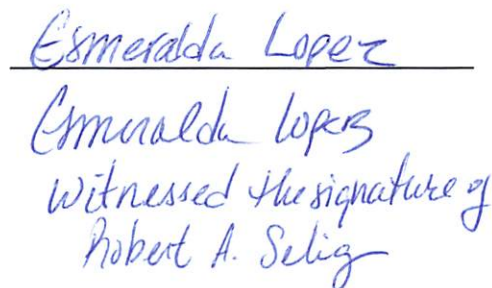 Esmeralda Lopez
Esmeralda Lopez
witnessed the signature of
Robert A. Selig